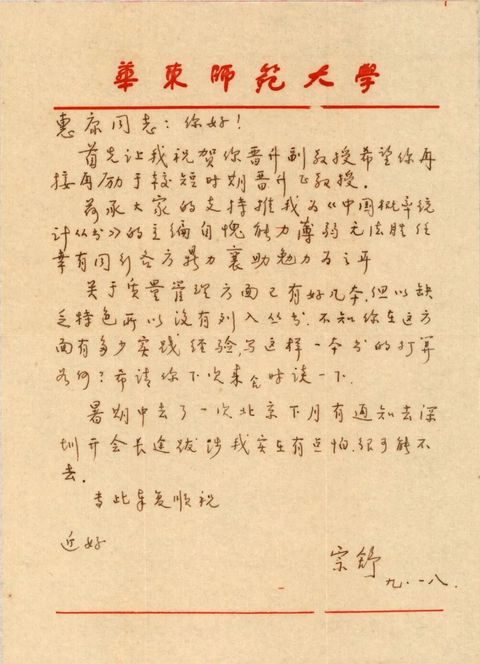 華東師範大學
惠康同志：你好！
首先让我祝贺你晋升副教授希望你再
接再励于较短时期晋升正教授。
荷承大家的支持推我为《中国概率统
计丛书》的主编自愧能力薄弱无法胜任
幸有同行各方鼎力襄助勉力为之耳
关于质量管理方面已有好几本.但以缺
乏特色所以没有列入丛书.不知你在这方
面有多少实践经验,写这样一本书的打算
为何？希请你下次来仓时谈一下.
暑期中去了一次北京下月有通知去深
圳开会长途跋涉我实在有点怕.很可能不
去.
专此奉复顺祝
近好
宗舒
九.一八.